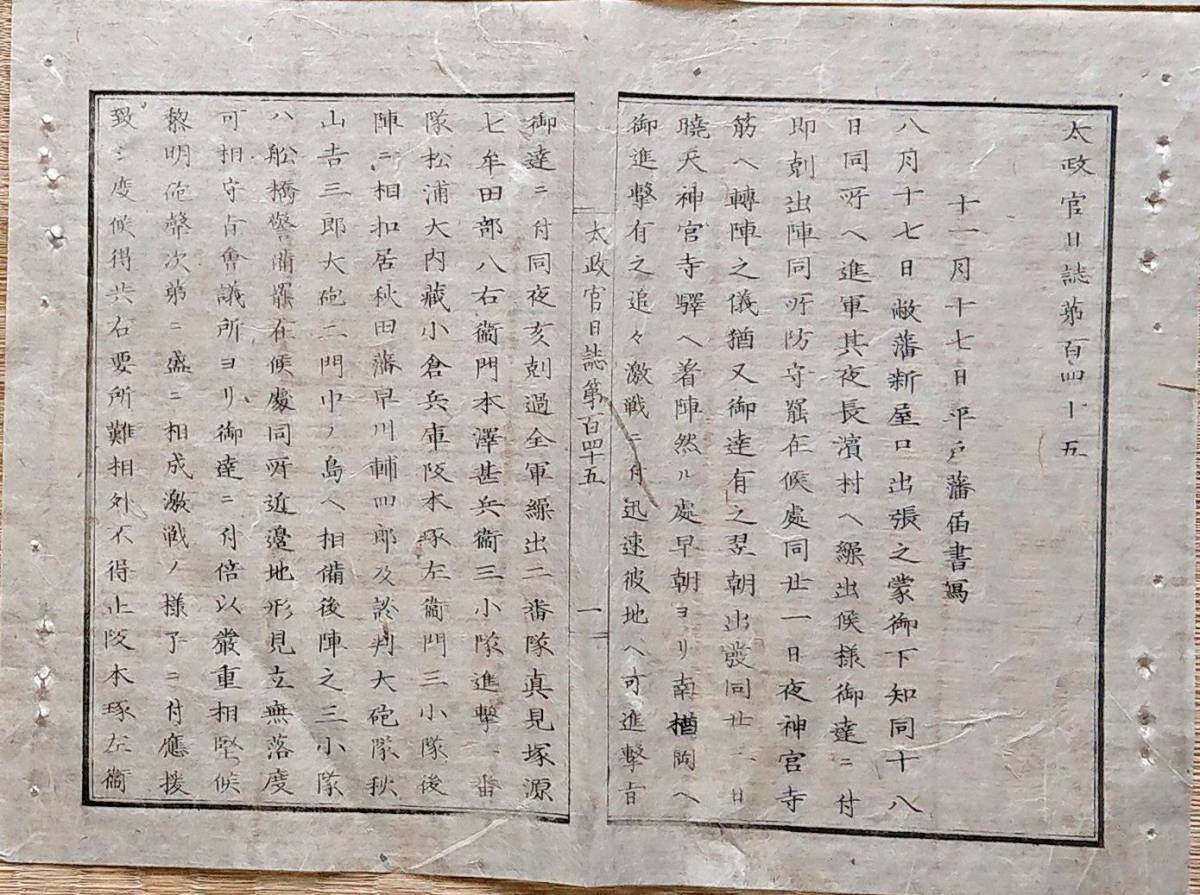 太政官日誌第百四十五
十一月十七日平戸藩届書寫
八月十七日敝藩新屋口出張之蒙御下知同十八
日同所ヘ進軍其夜長濱村ヘ繰出候樣御達ニ付
即剋出陣同所防守罷在候處同廿一日夜神宮寺
筋ヘ轉陣之儀猶又御達有之翌朝出發同廿二日
曉天神宮寺驛ヘ着陣然ル處早朝ヨリ南楢岡ヘ
御進擊有之追々激戰ニ付迅速彼地ヘ可進擊旨
太政官日誌第百四十五
一
御達ニ付同夜亥剋過全軍繰出二番隊真見塚源
七牟田部八右衞門本澤甚兵衞三小隊進擊一番
隊松浦大內藏小倉兵庫阪本琢左衞門三小隊後
陣ニ相扣居秋田藩早川輔四郎及談判大砲隊秋
山吉三郎大砲二門中ノ島ヘ相備後陣之三小隊
ハ舩橋警備罷在候處同所近邊地形見立無落度
可相守旨會議所ヨリ御達ニ付倍以嚴重相堅候
黎明砲聲次第ニ盛ニ相成激戰ノ樣子ニ付應援
致シ度候得共右要所難相外不得止阪本琢左衞